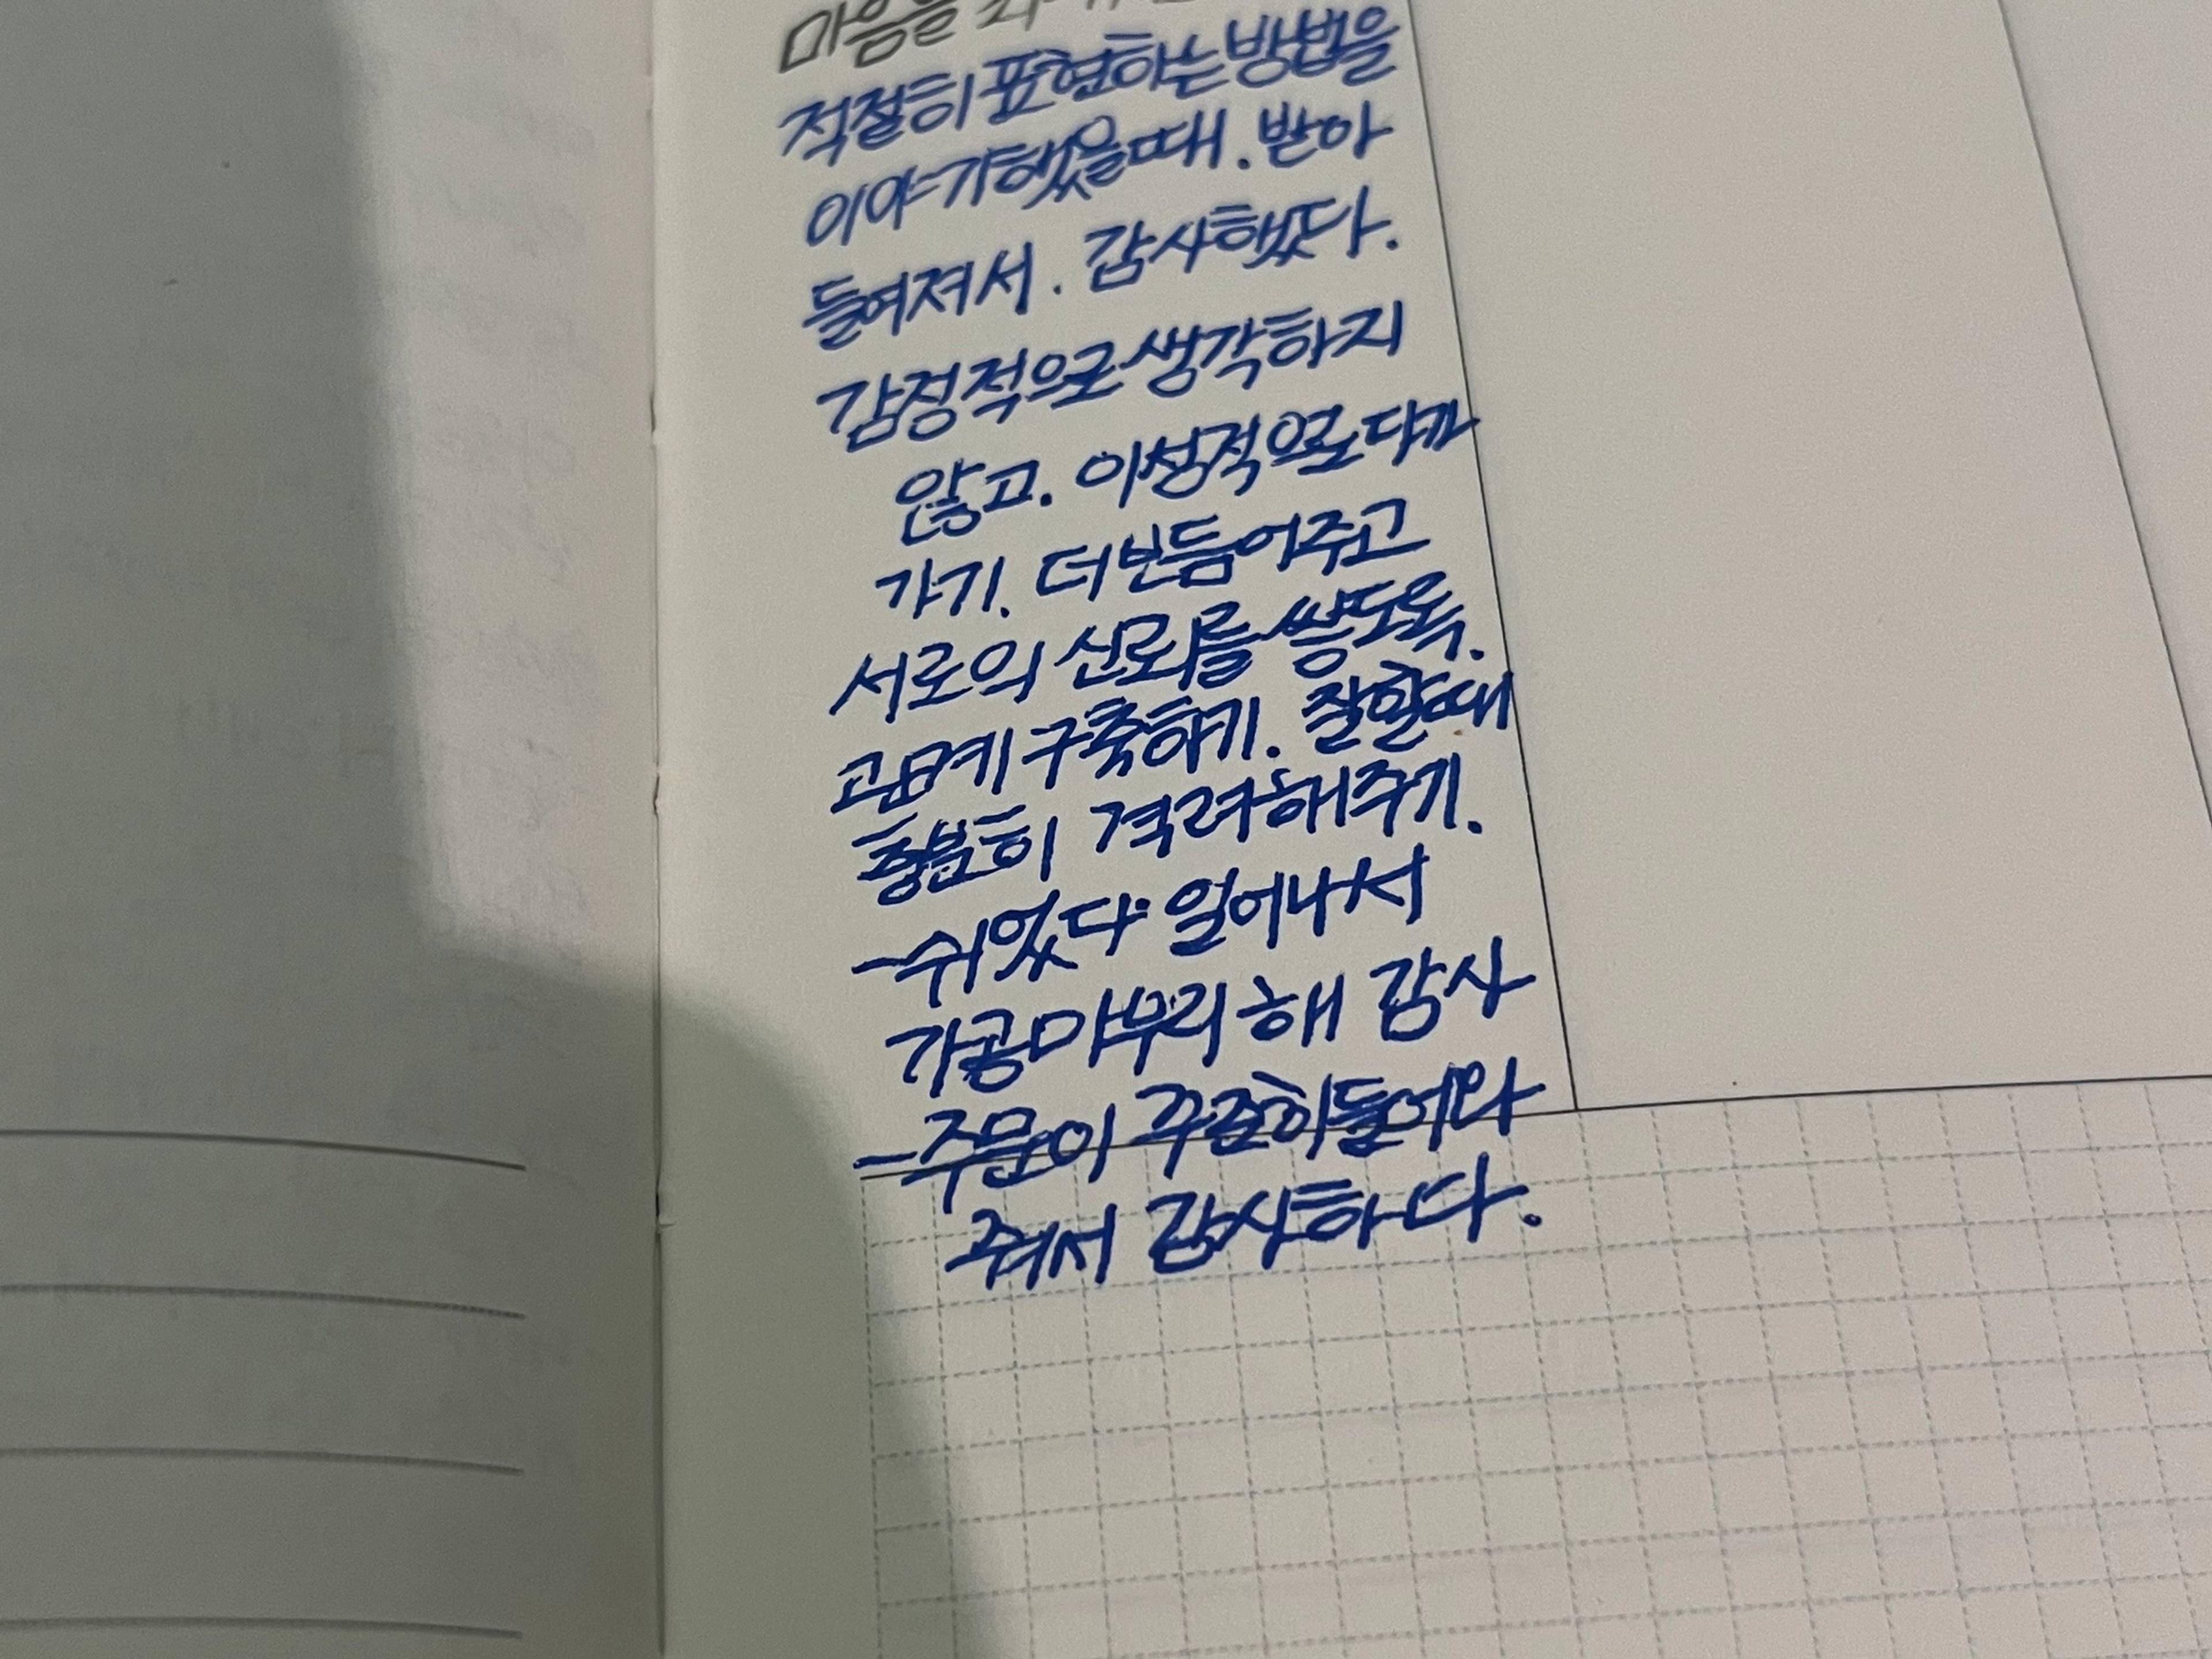 마음을
적절히 표현하는 방법을
이야기했을때. 받아
들여져서. 감사했다.
감정적으로 생각하지
않고. 이성적으로 다가
가기. 더 보듬어주고
서로의 신뢰를 쌓도록.
구축하기. 잘할때
충분히 격려해주기.
-쉬었다 일어나서
가공마무리 해 감사
-주문이 꾸준히 들어와
줘서 감사하다.